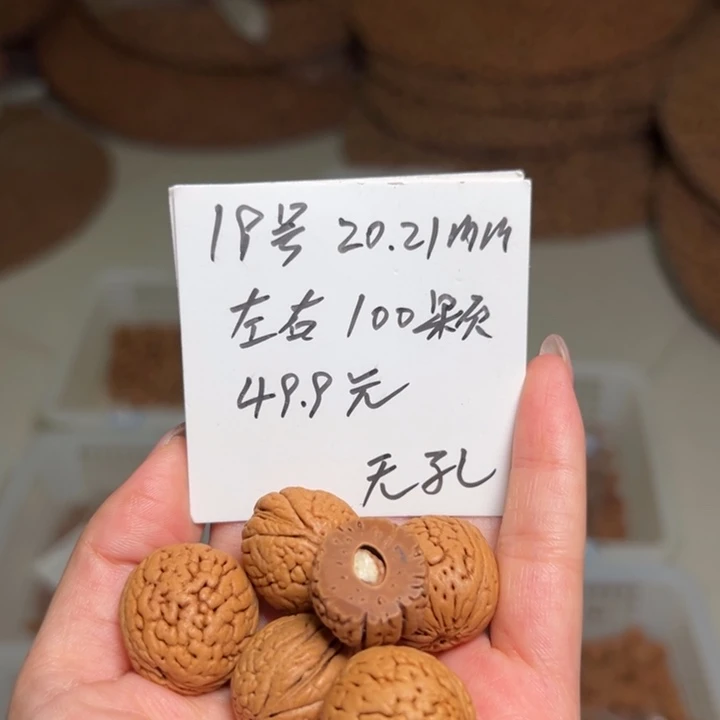 19号 20.21mm
左右 100颗
49.9元
无孔